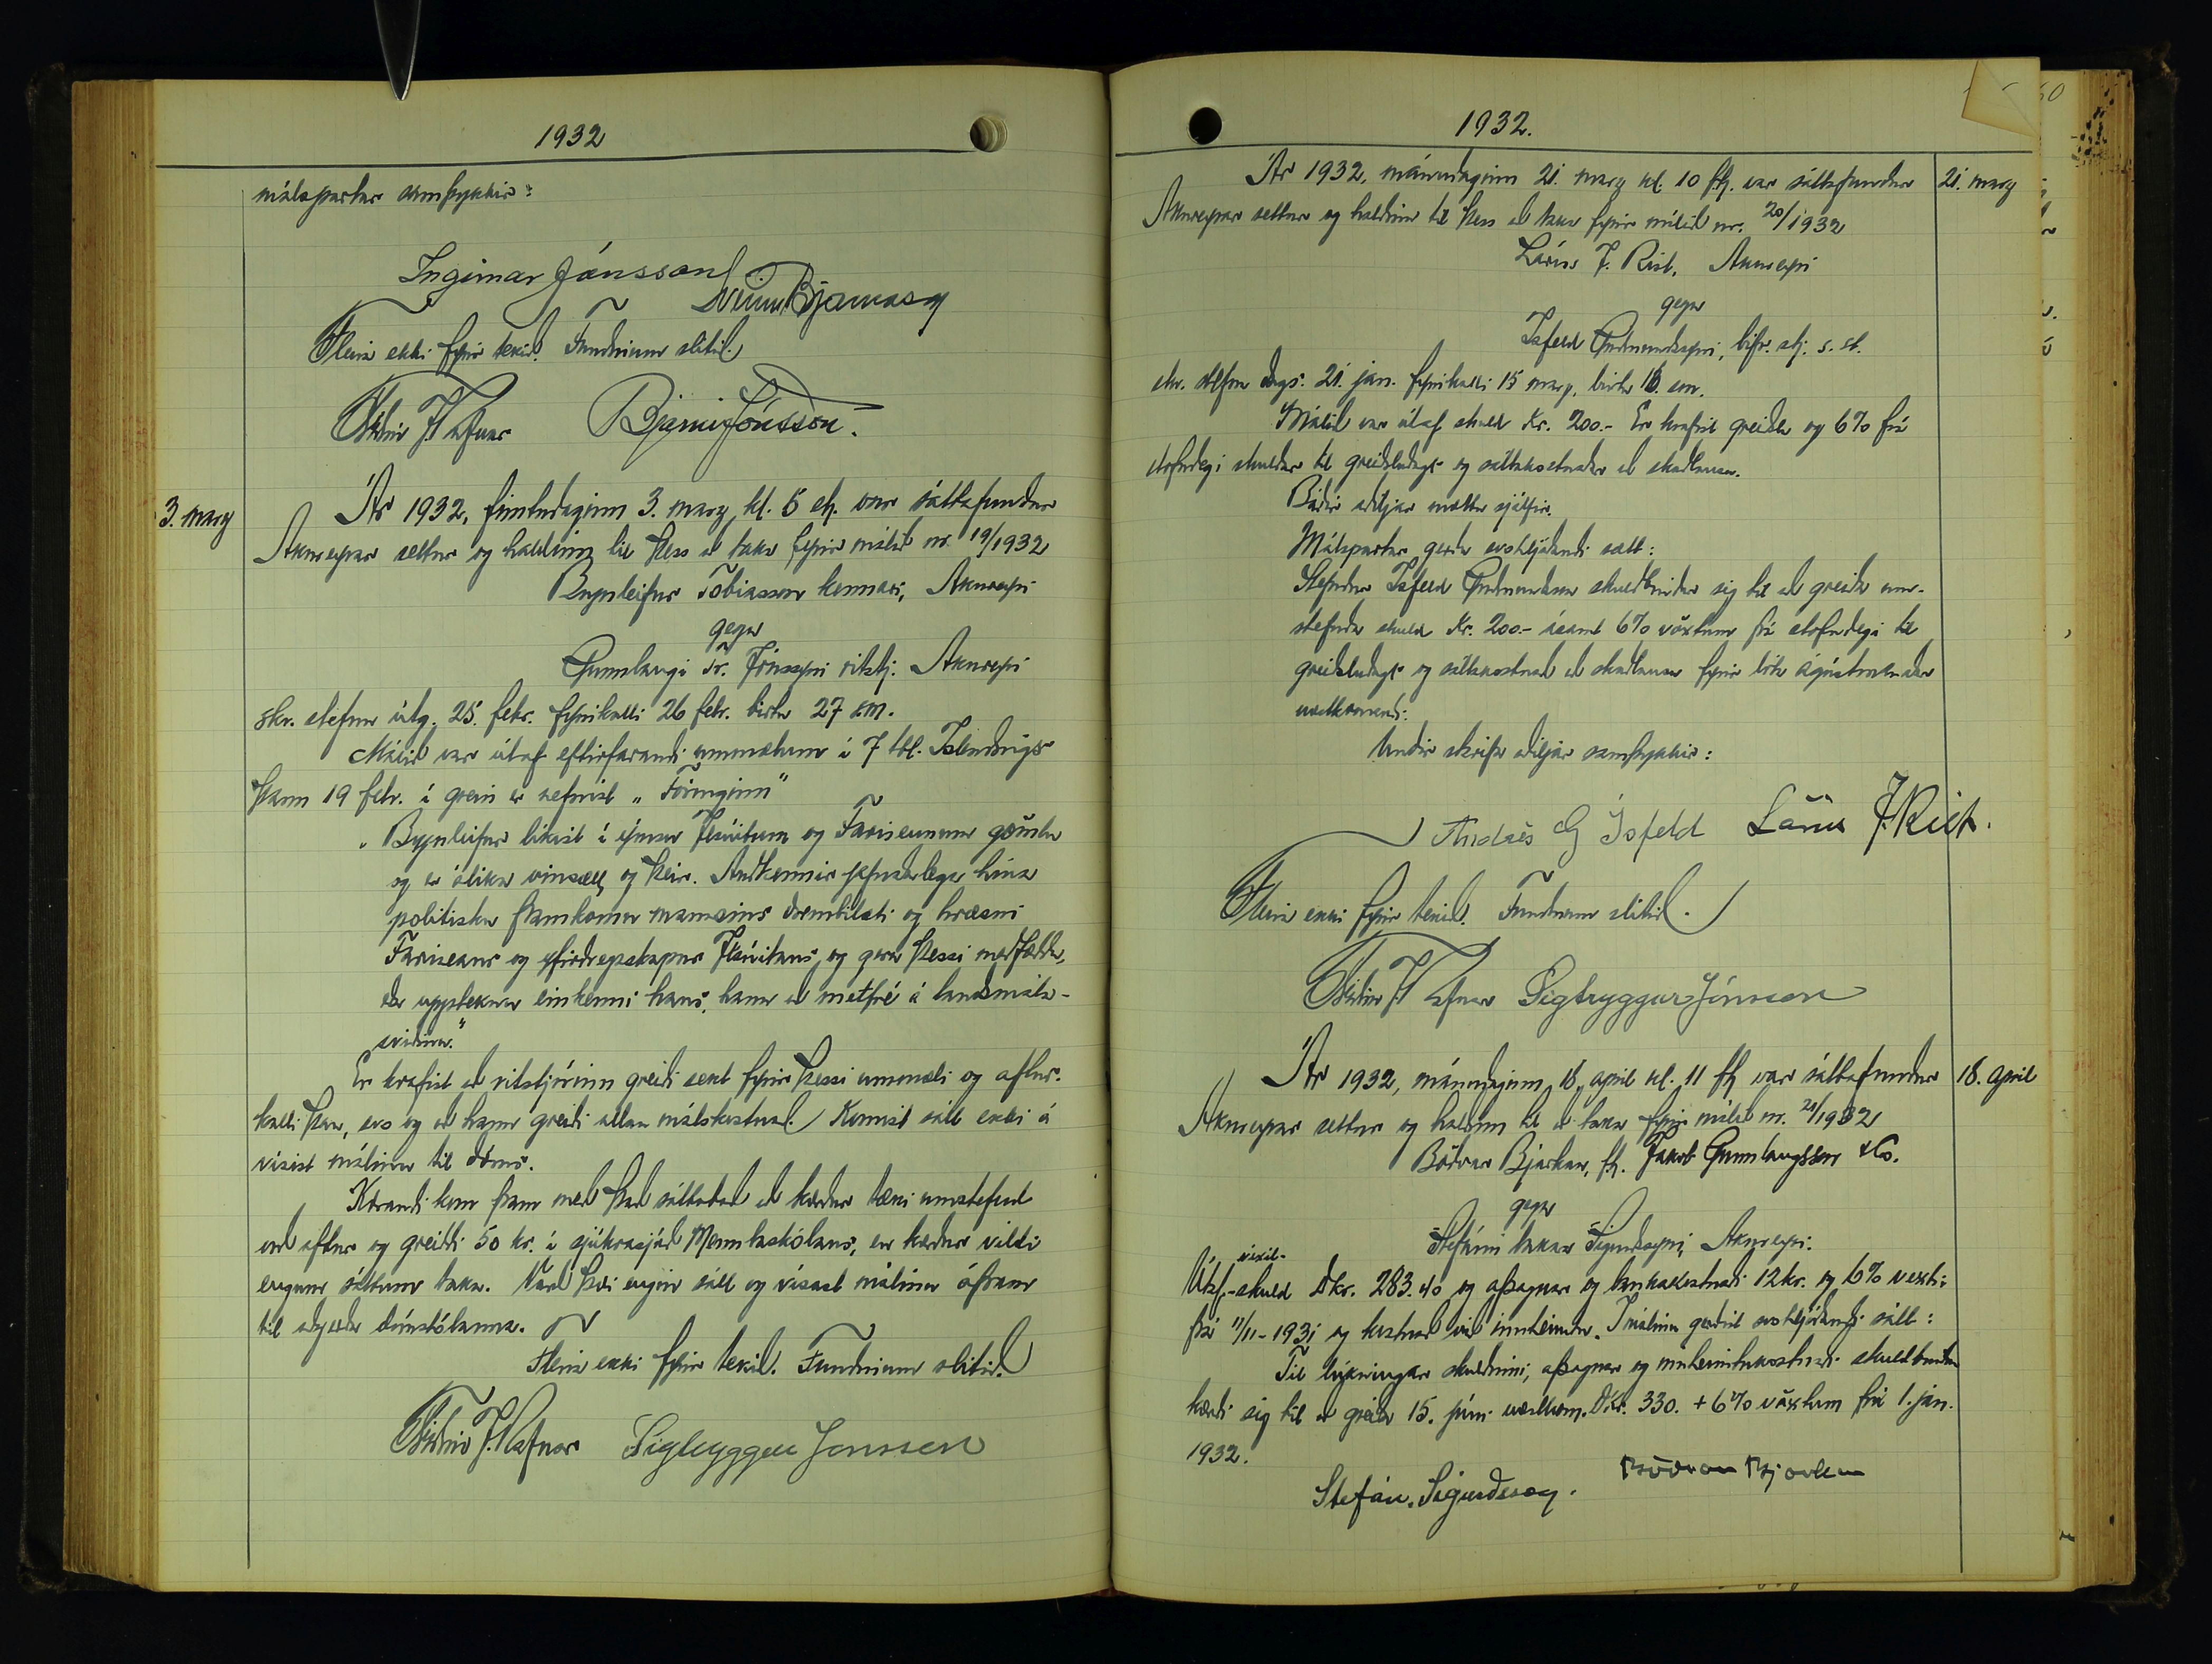 1932
málspartar samþykkir:
Ingimar Jónsson
Bjarnason
Fleira ekki fyrir tekið. Fundinum slitið.
Friðrik J. Rafnar Bjarni Jónsson.
3. marz
Ár 1932, fimtudaginn 3. marz, kl. 5 eh. var sáttafundur
Akureyrar settur og haldinn til þess að taka fyrir málið nr. 19/1932
Brynleifur Tobiasson kennari, Akureyri
gegn
Gunnlaugi Tr. Jónssyni ritstj. Akureyri
skv. stefnu útg. 25. febr. fyrirkalli 26 febr. birtu 27 s.m.
Málið var útaf eftirfarandi ummælum í 7 tbl. Islendings
þann 19 febr. í grein er nefnist „Foringinn"
„Brynleifur líkist í ýmsu Jesúitum og Fariseunum gömlu
og er álíka vinsæll og þeir. Auðkennir jafnaðarlega hina
politisku framkomu mannsins drembilæti og hræsni
Fariseans og yfirdrepskapur Jesúitans, og gera þessi meðfæddu,
eða uppteknu einkenni hans, hann að metfé á landsmála-
sviðinu."
Er krafist að ritstjórinn greiði sekt fyrir þessi ummæli og aftur-
kalli þau, svo og að hann greiði allan málskostnað. Komist sátt ekki á
vísist málinu til dóms.
Kærandi kom fram með það sáttaboð að kærður tæki umstefnd
orð aftur og greiddi 50 kr. í sjúkrasjóð Menntaskólans, en kærður vildi
engum sáttum taka. Varð því engin sátt og vísast málinu áfram
til aðgerða dómstólanna.
Fleira ekki fyrir tekið. Fundinum slitið.
Friðrik J. Rafnar Sigtryggur Jónsson
1932.
Ár 1932, mánudaginn 21. marz kl. 10 fh. var sáttafundur
21. marz
Akureyrar settur og haldinn til þess að taka fyrir málið nr. 20/1932
Lárus J. Rist, Akureyri
gegn
Isfeld Guðmundssyni, bifr. stj. s. st.
skv. stefnu dags. 21. jan. fyrirkalli 15 marz, birtu 18. s.m.
Málið var útaf skuld Kr. 200.- Er krafist greiðslu og 6% frá
stofndegi skuldar til greiðsludags og sáttakostnaðar að skaðlausu.
Báðir aðiljar mættu sjálfir.
Málspartar gerðu svohljóðandi sætt:
Stefndur Isfeld Guðmundsson skuldbindur sig til að greiða um-
stefnda skuld Kr. 200.- ásamt 6% vöxtum frá stofndegi til
greiðsludags og sáttakostnað að skaðlausu fyrir lok ágústmánaðar
næstkomandi.
Undir skrifa aðiljar samþykkir:
Andrés G Ísfeld Lárus J. Rist.
Fleira ekki fyrir tekið. Fundinum slitið.
Friðrik J. Rafnar Sigtryggur Jónsson
Ár 1932, mánudaginn 18. april kl. 11 fh var sáttafundur
18. april
Akureyrar settur og haldinn til að taka fyrir málið nr. 21/1932
Böðvar Bjarkan, fh. Jakob Gunnlaugsson & Co.
gegn
Stefáni Sigurdssyni, Akureyri.
víxil-
Útaf -skuld Dkr. 283.40 og afsagnar og bankakostnaði 12kr. og 6% vexti
frá 11/11-1931 og kostnað við innheimtu. Í málinu gerðist svohljóðandi sátt:
Til lúkningar skuldinni, afsagnar og innheimtukostnaði skuldbindur
kærði sig til að greiða 15. júni næstkom. Dkr. 330. + 6% vöxtum frá 1. jan.
1932.
Stefán. Sigurðsson. Böðvar Bjarkan